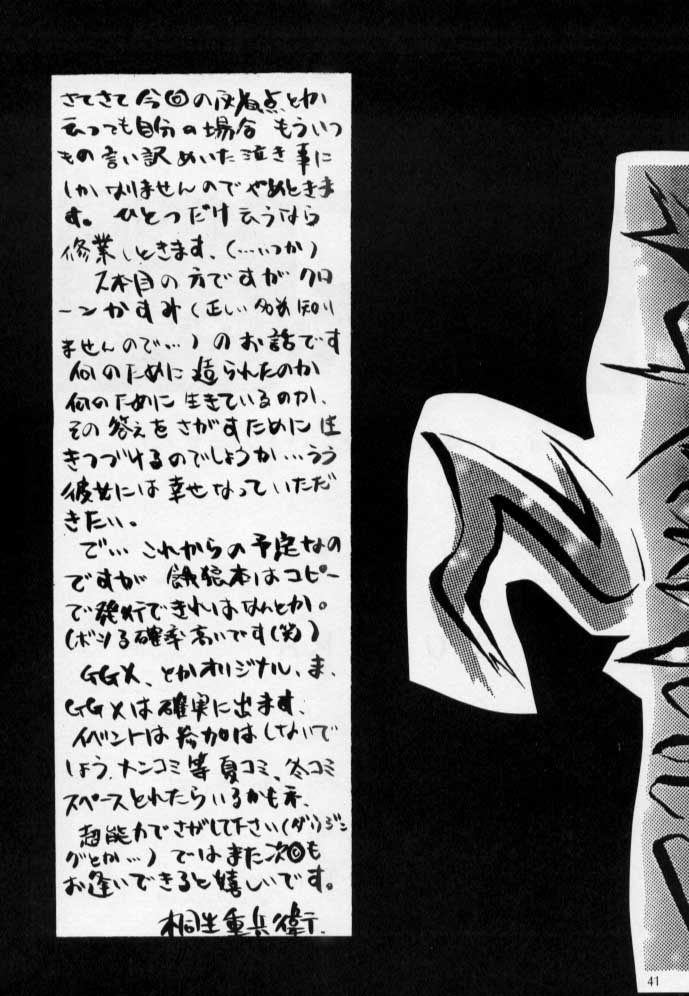 さてさて今回の反省点とか
云っても自分の場合 もういつ
もの言い訳めいた泣き事に
しかなりませんのでやめときま
す。ひとつだけ云うなら
修業しときます、(……いつか)
2本目の方ですがクロ
ーンかすみ(正しい名前知り
ませんので…)のお話です
何のために造られたのか
何のために生きているのか、
その答えをさがすために生
きつづけるのでしょうか…うう
彼女には幸せなっていただ
きたい。
で… これからの予定なの
ですが 餓狼本はコピー
で発行できればなんとか。
(ボツる確率高いです(笑)
GGX、とかオリジナル、ま、
GGXは確実に出ます、
イベントは参加はしないで
しょう、ナンコミ等 夏コミ、冬コミ
スペースとれたらいるかもネ、
超能力でさがして下さい(ダウジン
グとか…)ではまた次回も
お逢いできると嬉しいです。
桐生重兵衛、
41